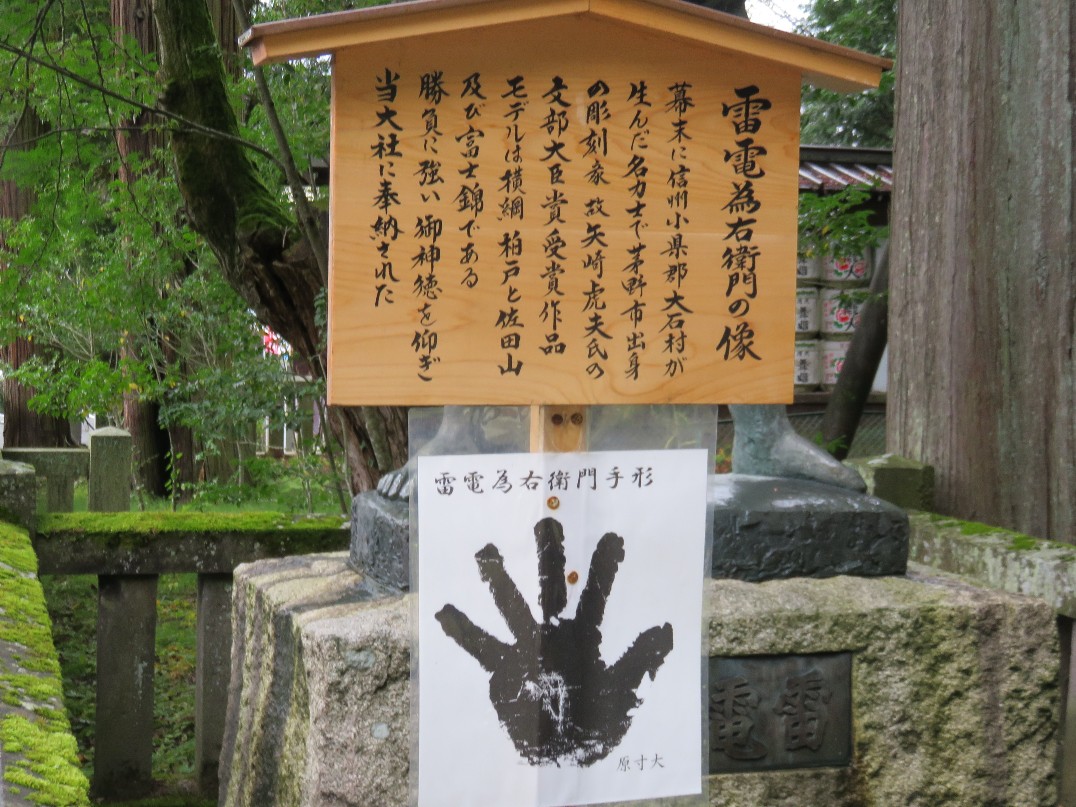 雷電為右衛門の像
幕末に信州小県郡大石村が
生んだ名力士で茅野市出身
の彫刻家 故矢崎虎夫氏の
文部大臣賞受賞作品
モデルは横綱 柏戸と佐田山
及び富士錦である
勝負に強い御神徳を仰ぎ
当大社に奉納された
雷電為右衛門手形
原寸大
雷電